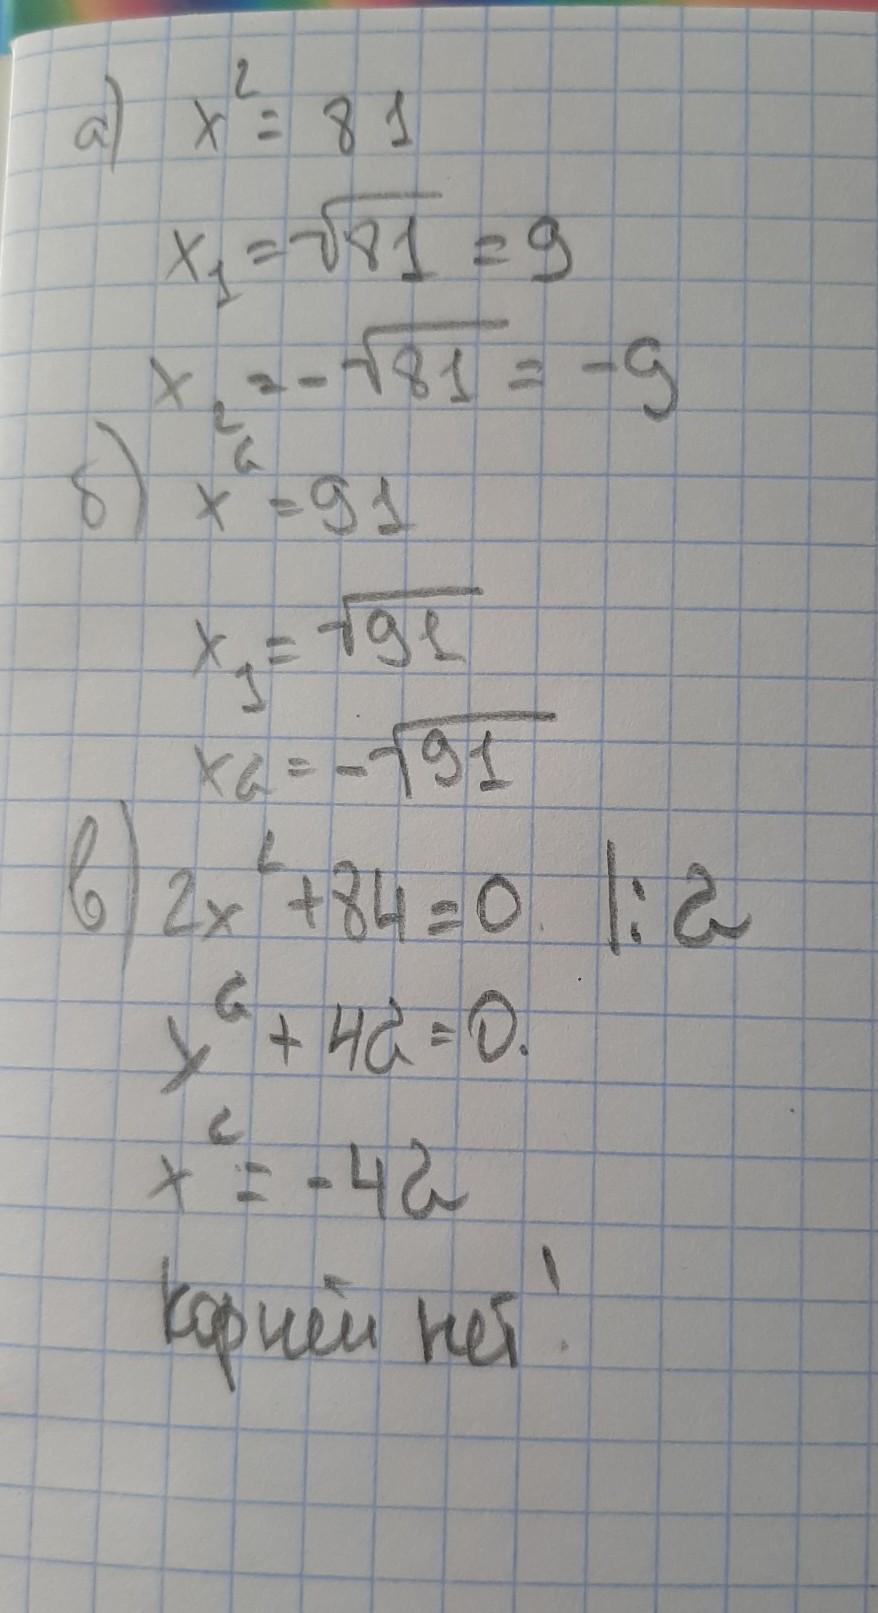 а) x² = 81
x₁ = √81 = 9
x₂ = -√81 = -9
б) x² = 91
x₁ = √91
x₂ = -√91
в) 2x² + 84 = 0. |: 2
x² + 42 = 0.
x² = -42
корней нет!